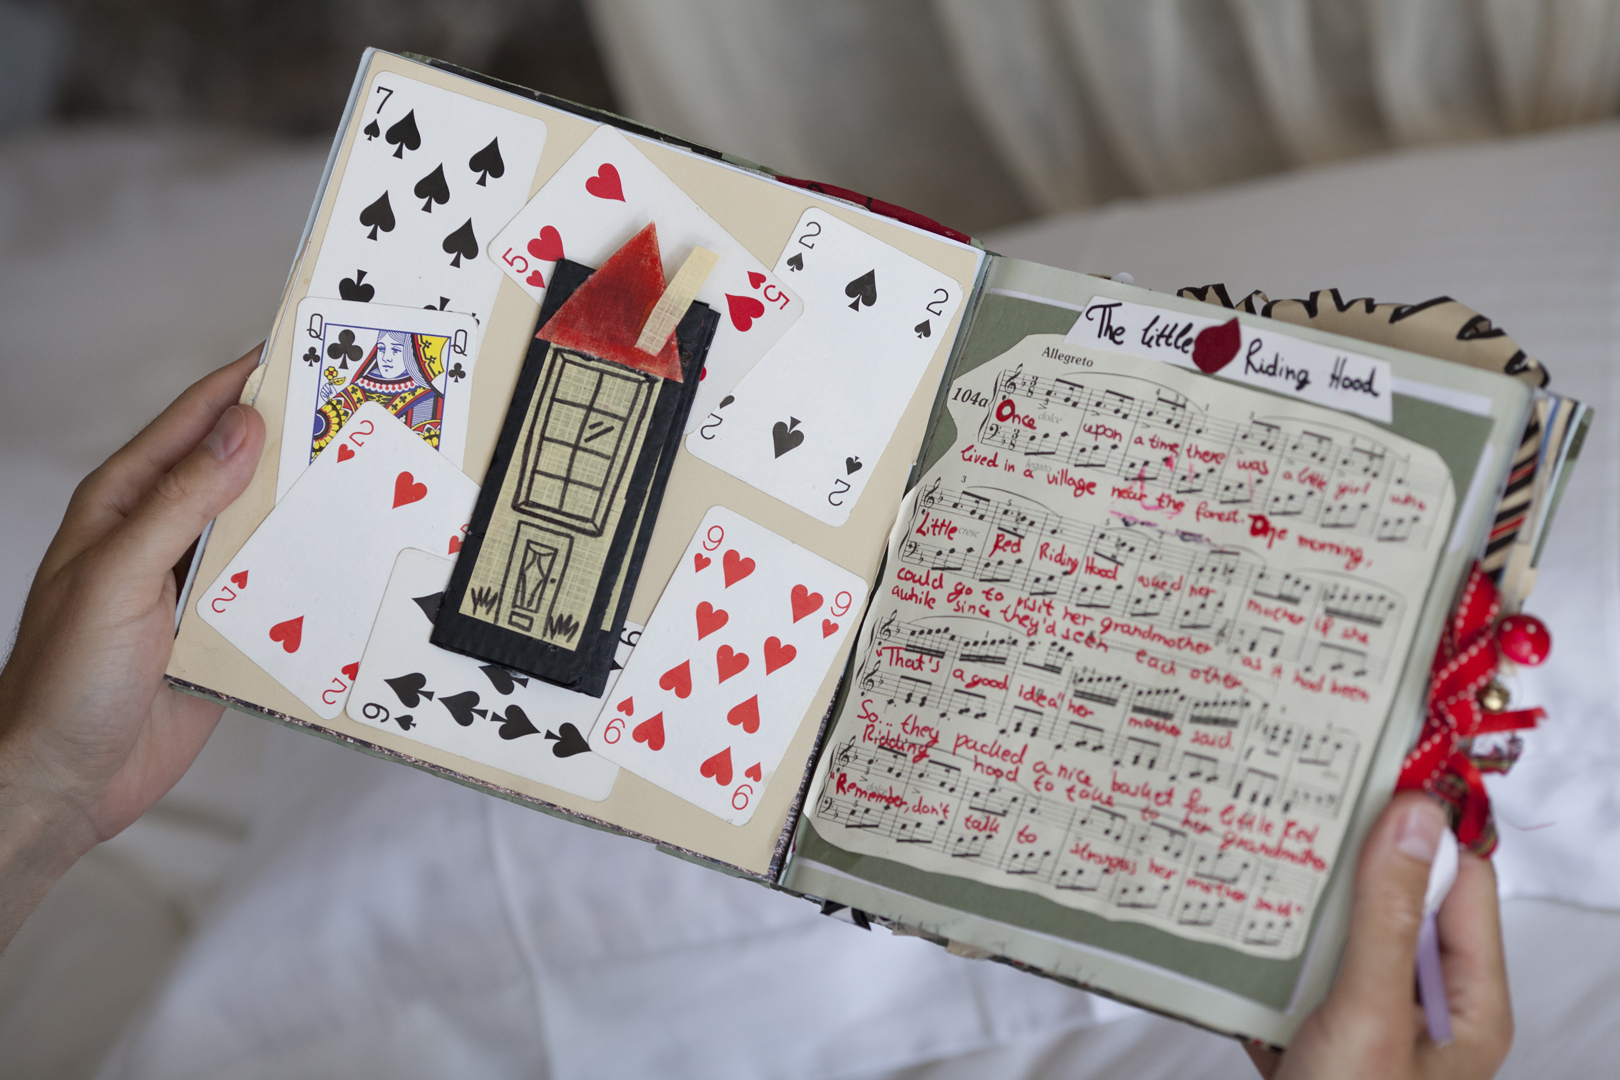 7
5
5
2
2
2
2
Q
Q
2
2
2
9
9
9
9
9
The little Riding Hood
Allegreto
104a
Once upon a time there was a little girl who
lived in a village near the forest. One morning,
Little Red Riding Hood asked her mother if she
could go to visit her grandmother as it had been
awhile since they'd seen each other
"That's a good idea" her mother said.
So... they packed a nice basket for Little Red
Ridding hood to take to her grandmother
"Remember, don't talk to strangers her mother said"